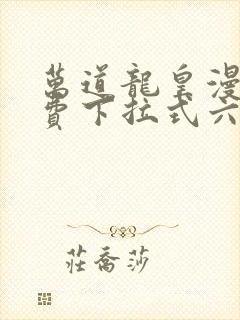 萬道龍皇漫
費下拉式六
莊喬莎